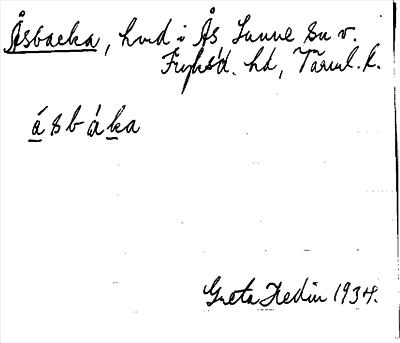 Åsbacka, hmd i Ås Sunne sn v.
Fryksd. hd, Värml. l.
ásbáka
Greta Hedin 1934.